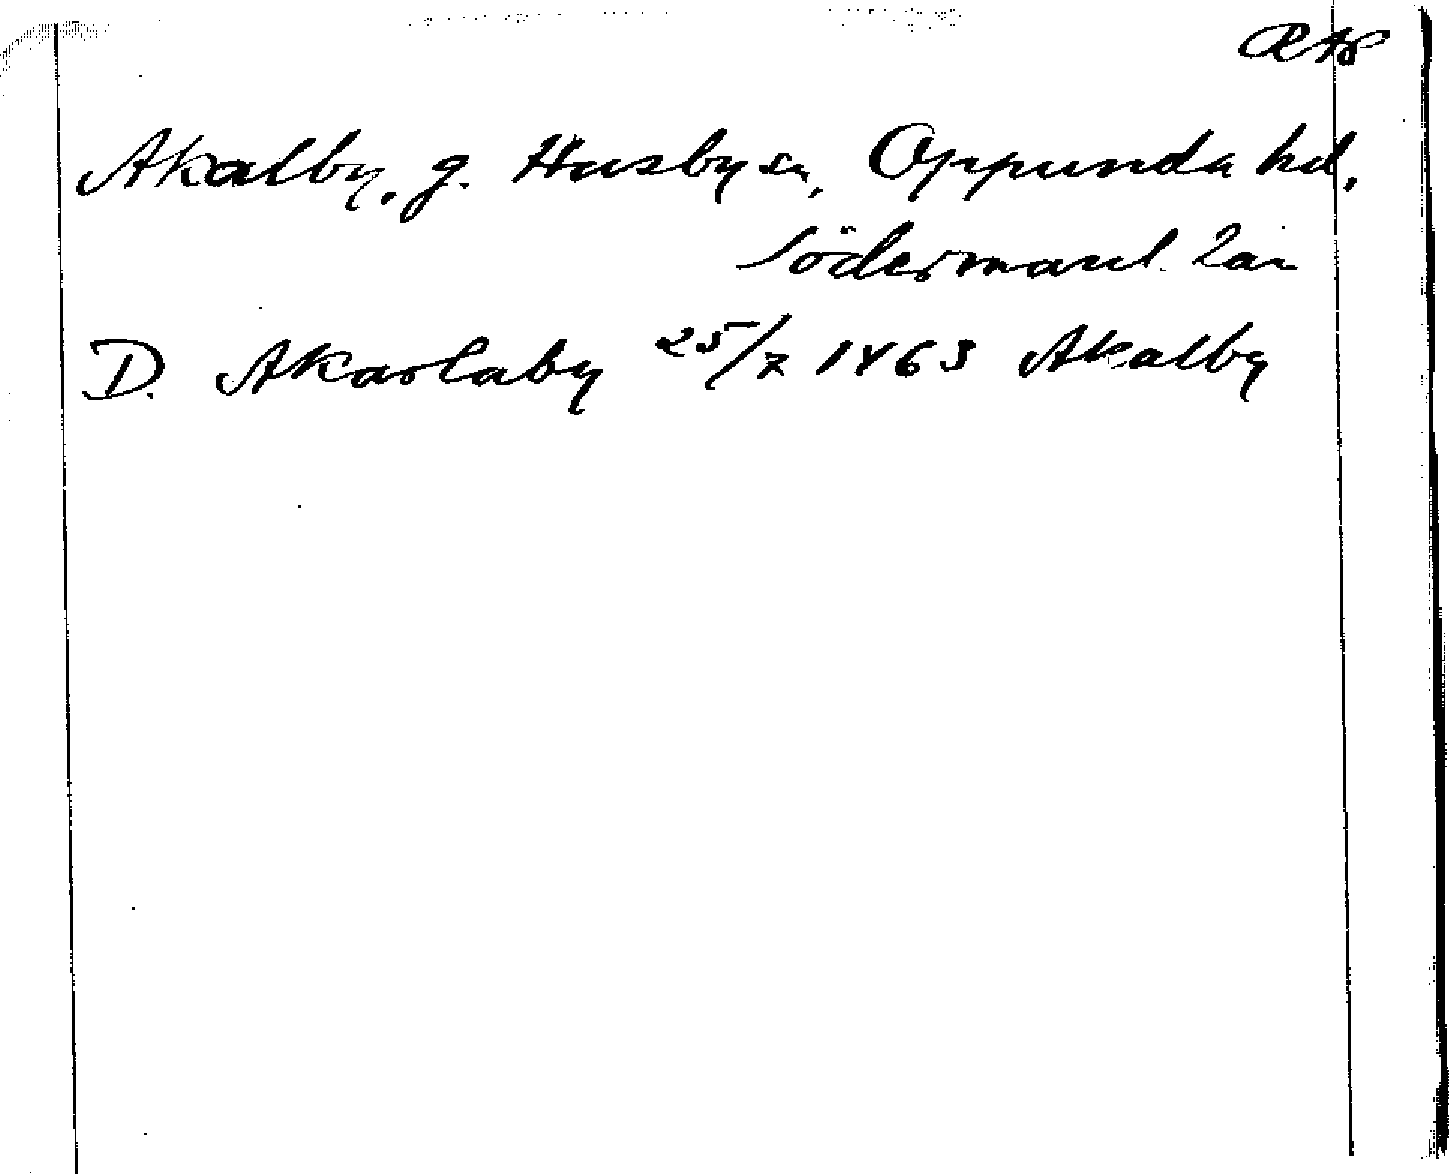 Akalby, g. Husby sn, Oppunda hd,
Södermanl. län
D. Akarlaby 25/7 1463 Akalby